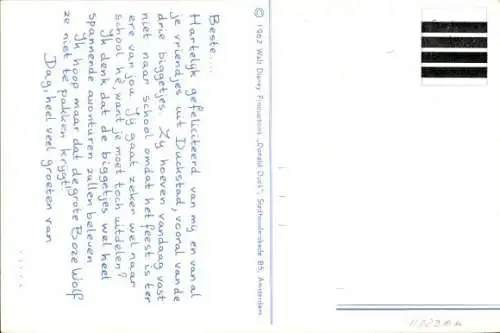 Beste....
Hartelijk gefeliciteerd van mij en van al
je vriendjes uit Duckstad, vooral van de
drie biggetjes. Zij hoeven vandaag vast
niet naar school omdat het feest is ter
ere van jou. Jij gaat zeker wel naar
school hè, want je moet toch uitdelen?
Ik denk dat de biggetjes wel heel
spannende avonturen zullen beleven
Ik hoop maar dat de grote Boze Wolf
ze niet te pakken krijgt!
Dag, heel veel groeten van
.....
© 1967 Walt Disney Productions „Donald Duck”, Stadhouderskade 85, Amsterdam